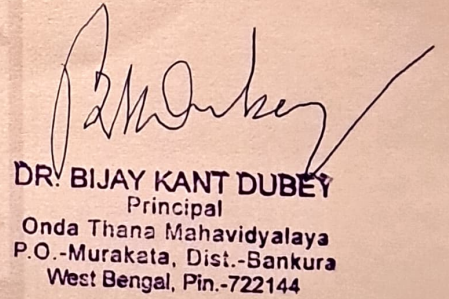 BKDubey
DR. BIJAY KANT DUBEY
Principal
Onda Thana Mahavidyalaya
P.O.-Murakata, Dist.-Bankura
West Bengal, Pin.-722144